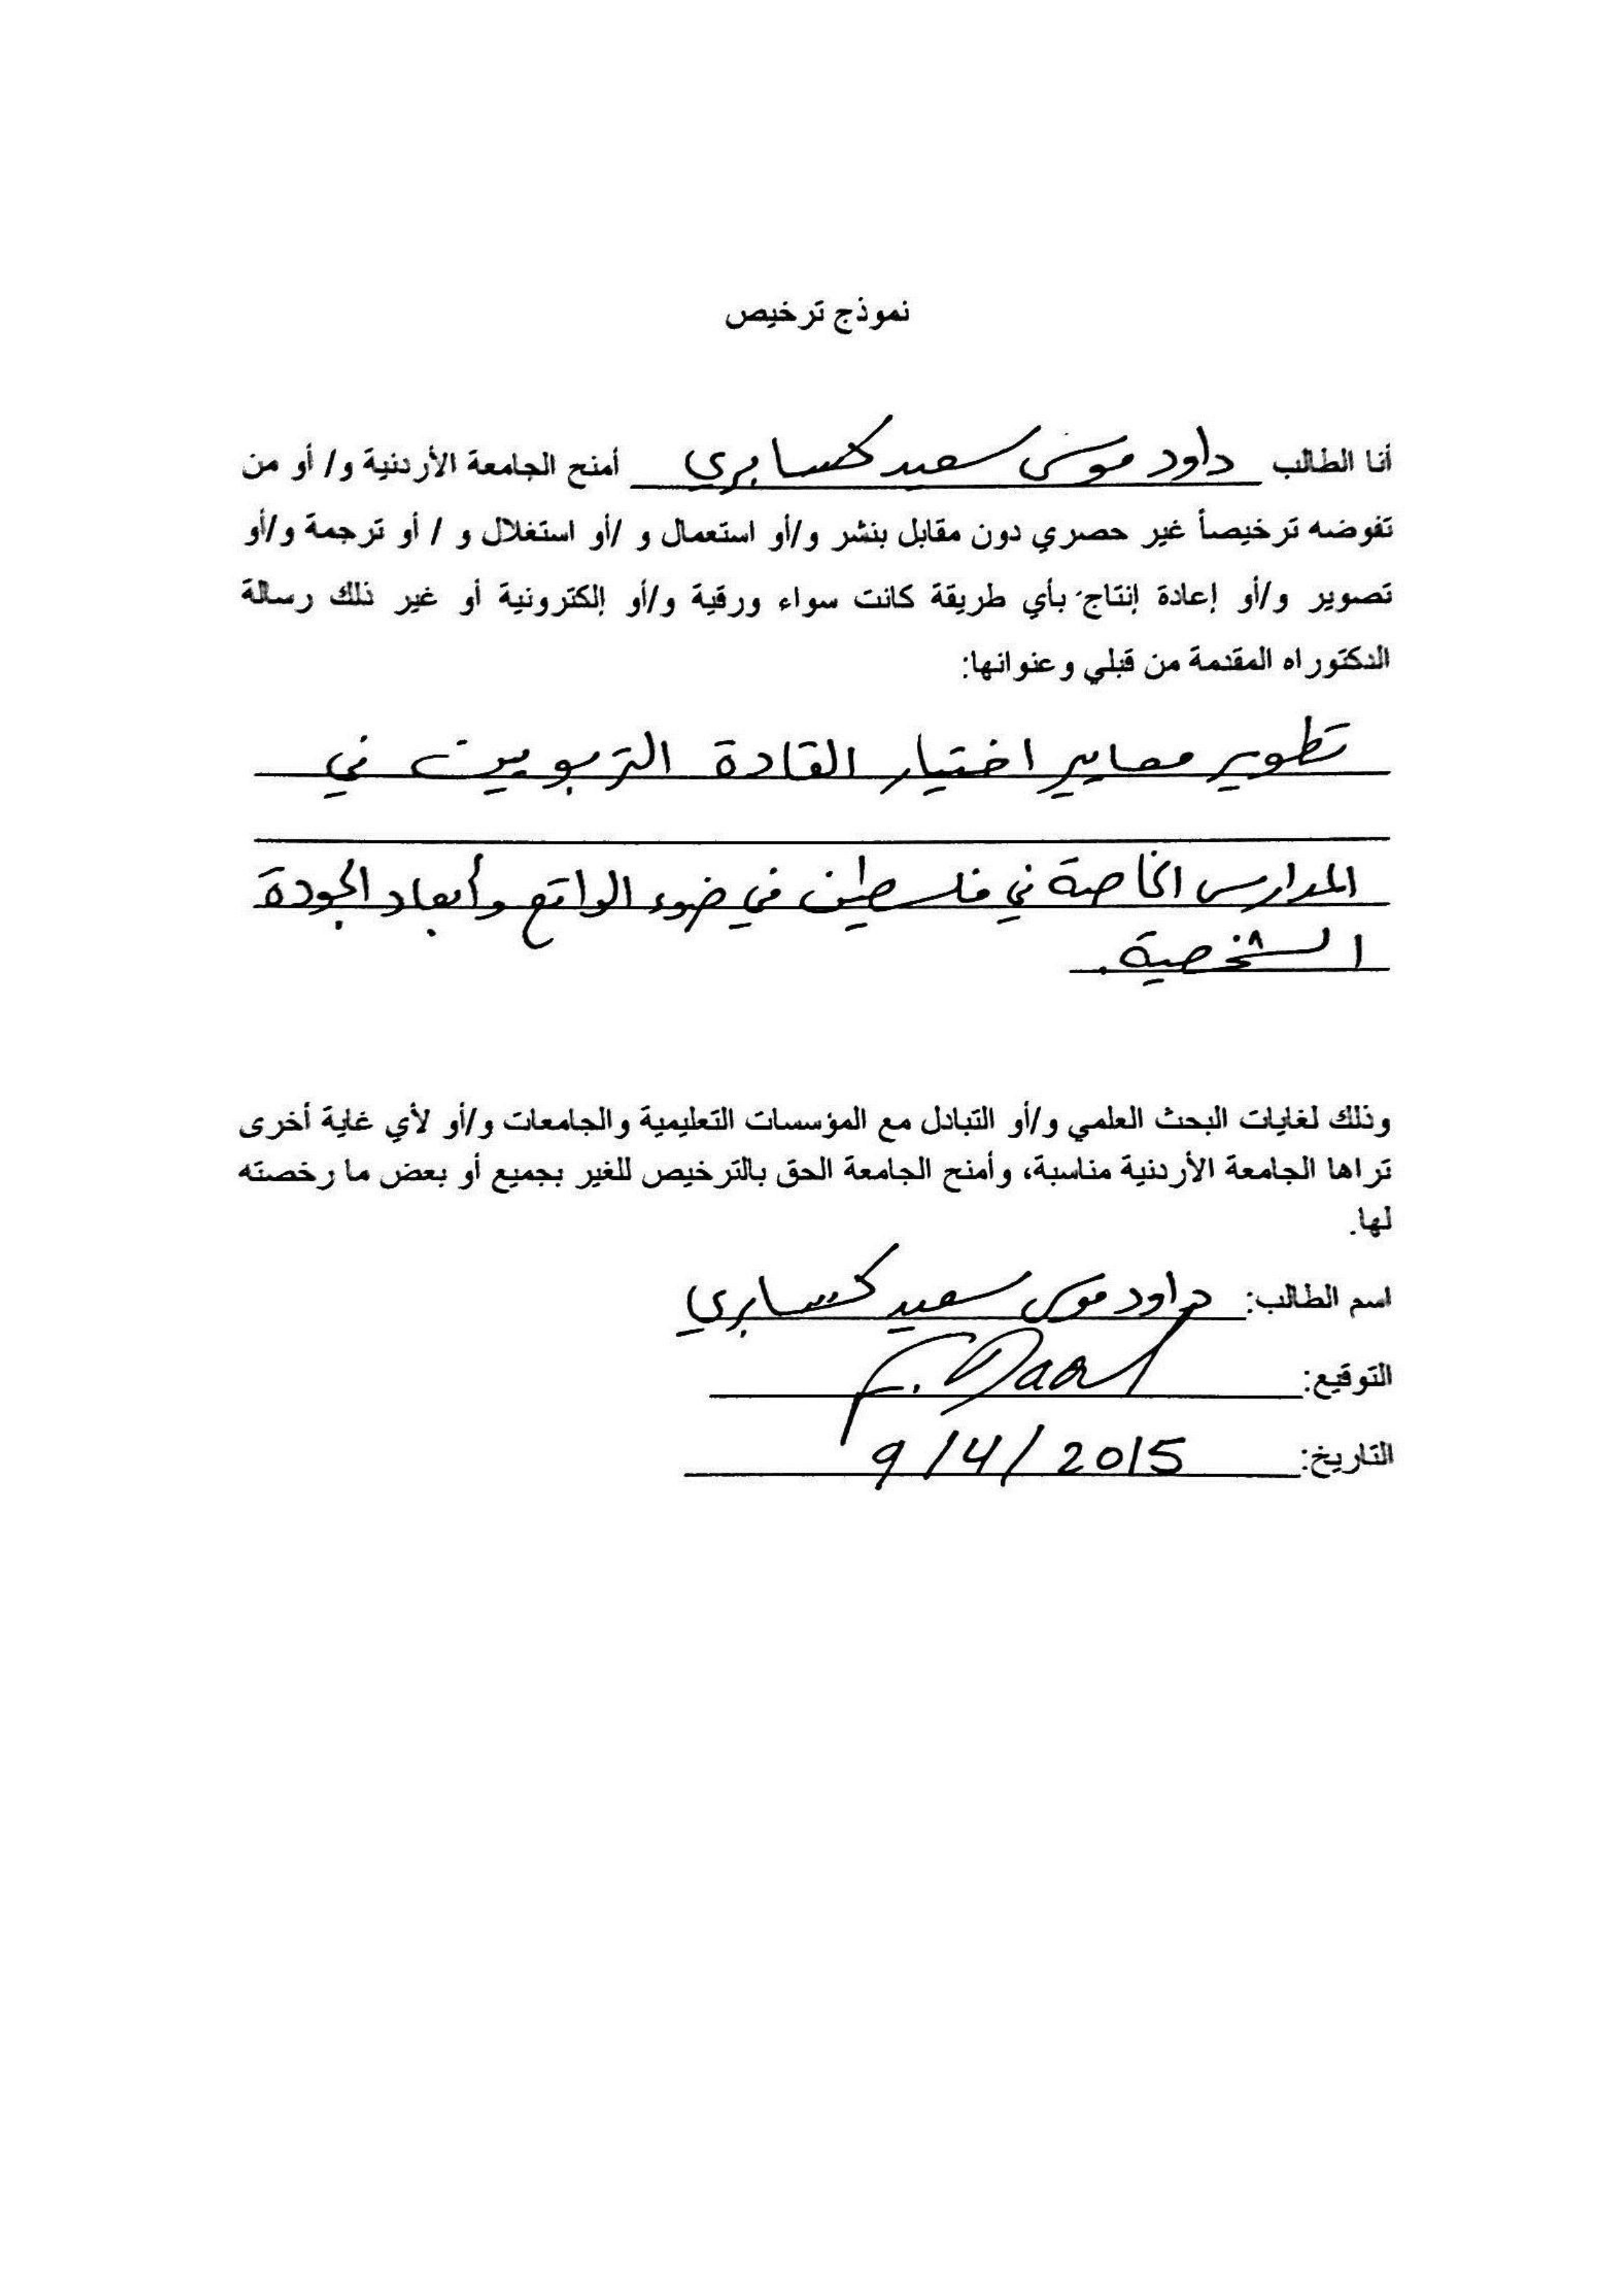 نموذج ترخيص
أنا الطالب داود موسى سعيد كسابري أمنح الجامعة الأردنية و/ أو من
تفوضه ترخيصاً غير حصري دون مقابل بنشر و/أو استعمال و /أو استغلال و / أو ترجمة و/أو
تصوير و/أو إعادة إنتاج بأي طريقة كانت سواء ورقية و/أو إلكترونية أو غير ذلك رسالة
الدكتوراه المقدمة من قبلي وعنوانها:
تطوير معايير اختيار القادة التربويين في
المدارس الخاصة في فلسطين في ضوء الواقع وأبعاد الجودة
الشخصية.
وذلك لغايات البحث العلمي و/أو التبادل مع المؤسسات التعليمية والجامعات و/أو لأي غاية أخرى
تراها الجامعة الأردنية مناسبة، وأمنح الجامعة الحق بالترخيص للغير بجميع أو بعض ما رخصته
لها.
اسم الطالب: داود موسى سعيد كسابري
التوقيع:
التاريخ: 9/4/2015